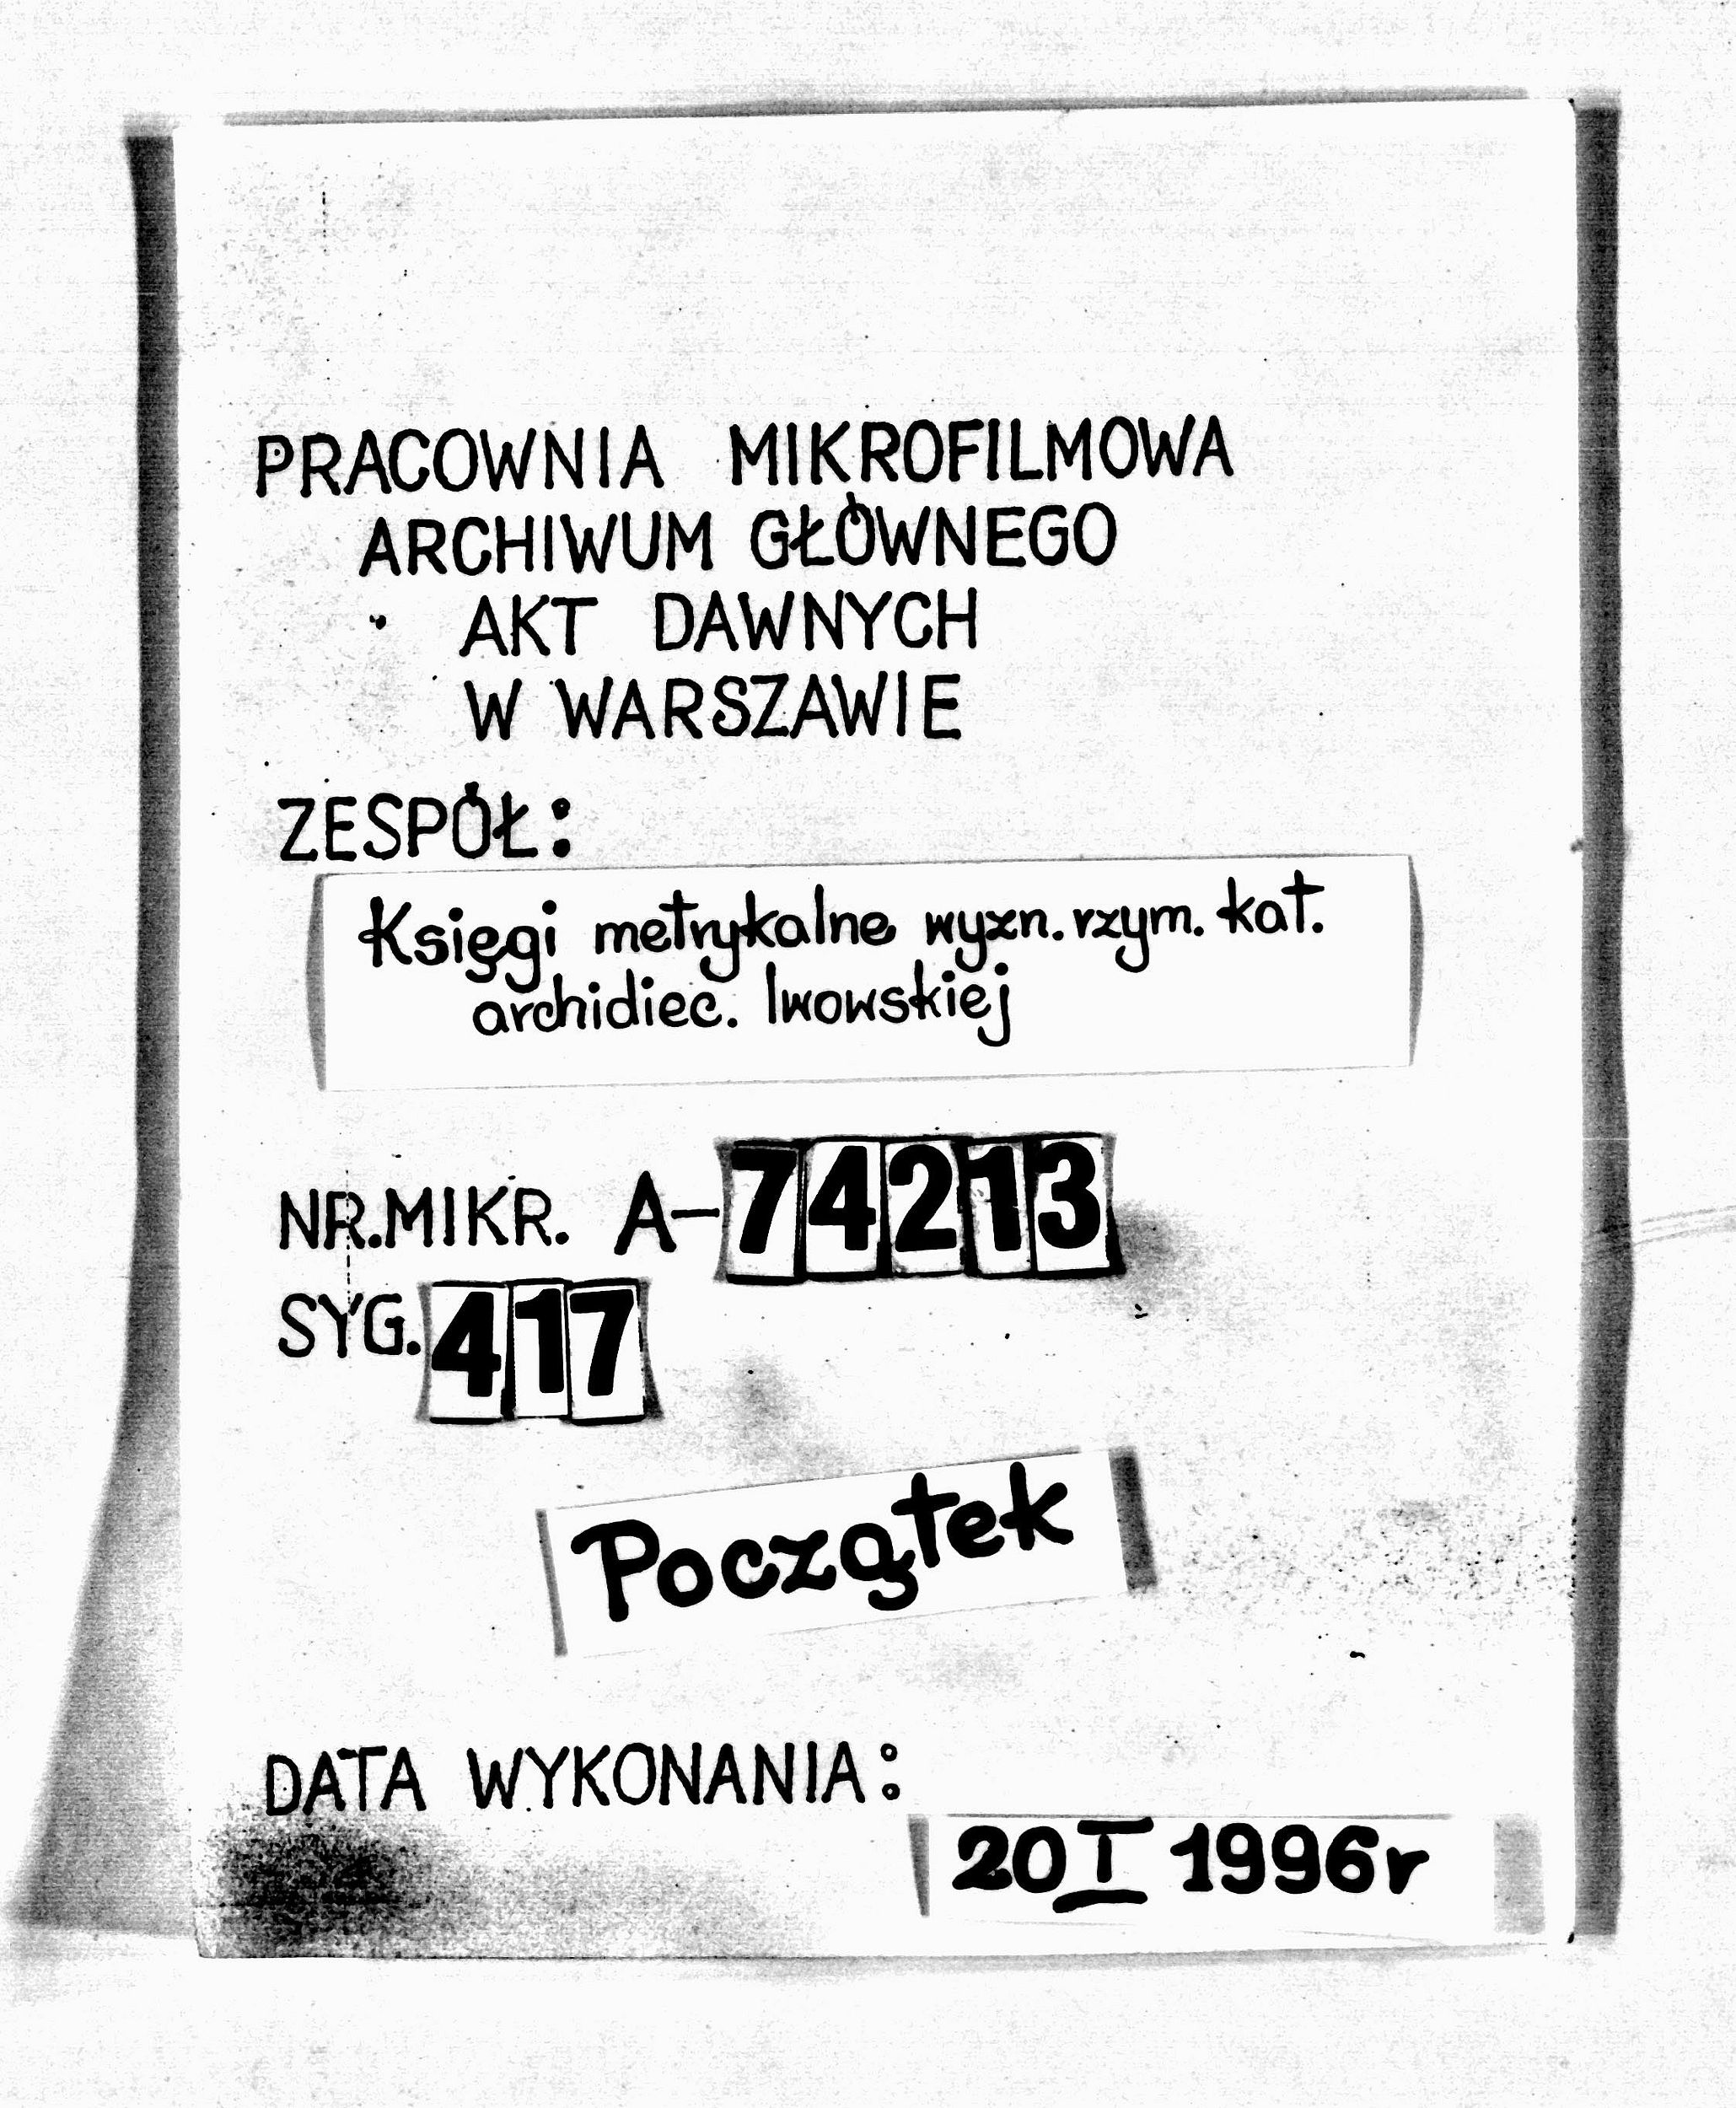 PRACOWNIA MIKROFILMOWA
ARCHIWUM GŁÓWNEGO
AKT DAWNYCH
W WARSZAWIE
ZESPÓŁ:
Księgi metrykalne wyzn. rzym. kat.
archidiec. lwowskiej
NR.MIKR. A-74213
SYG. 417
Początek
DATA WYKONANIA:
20 I 1996r